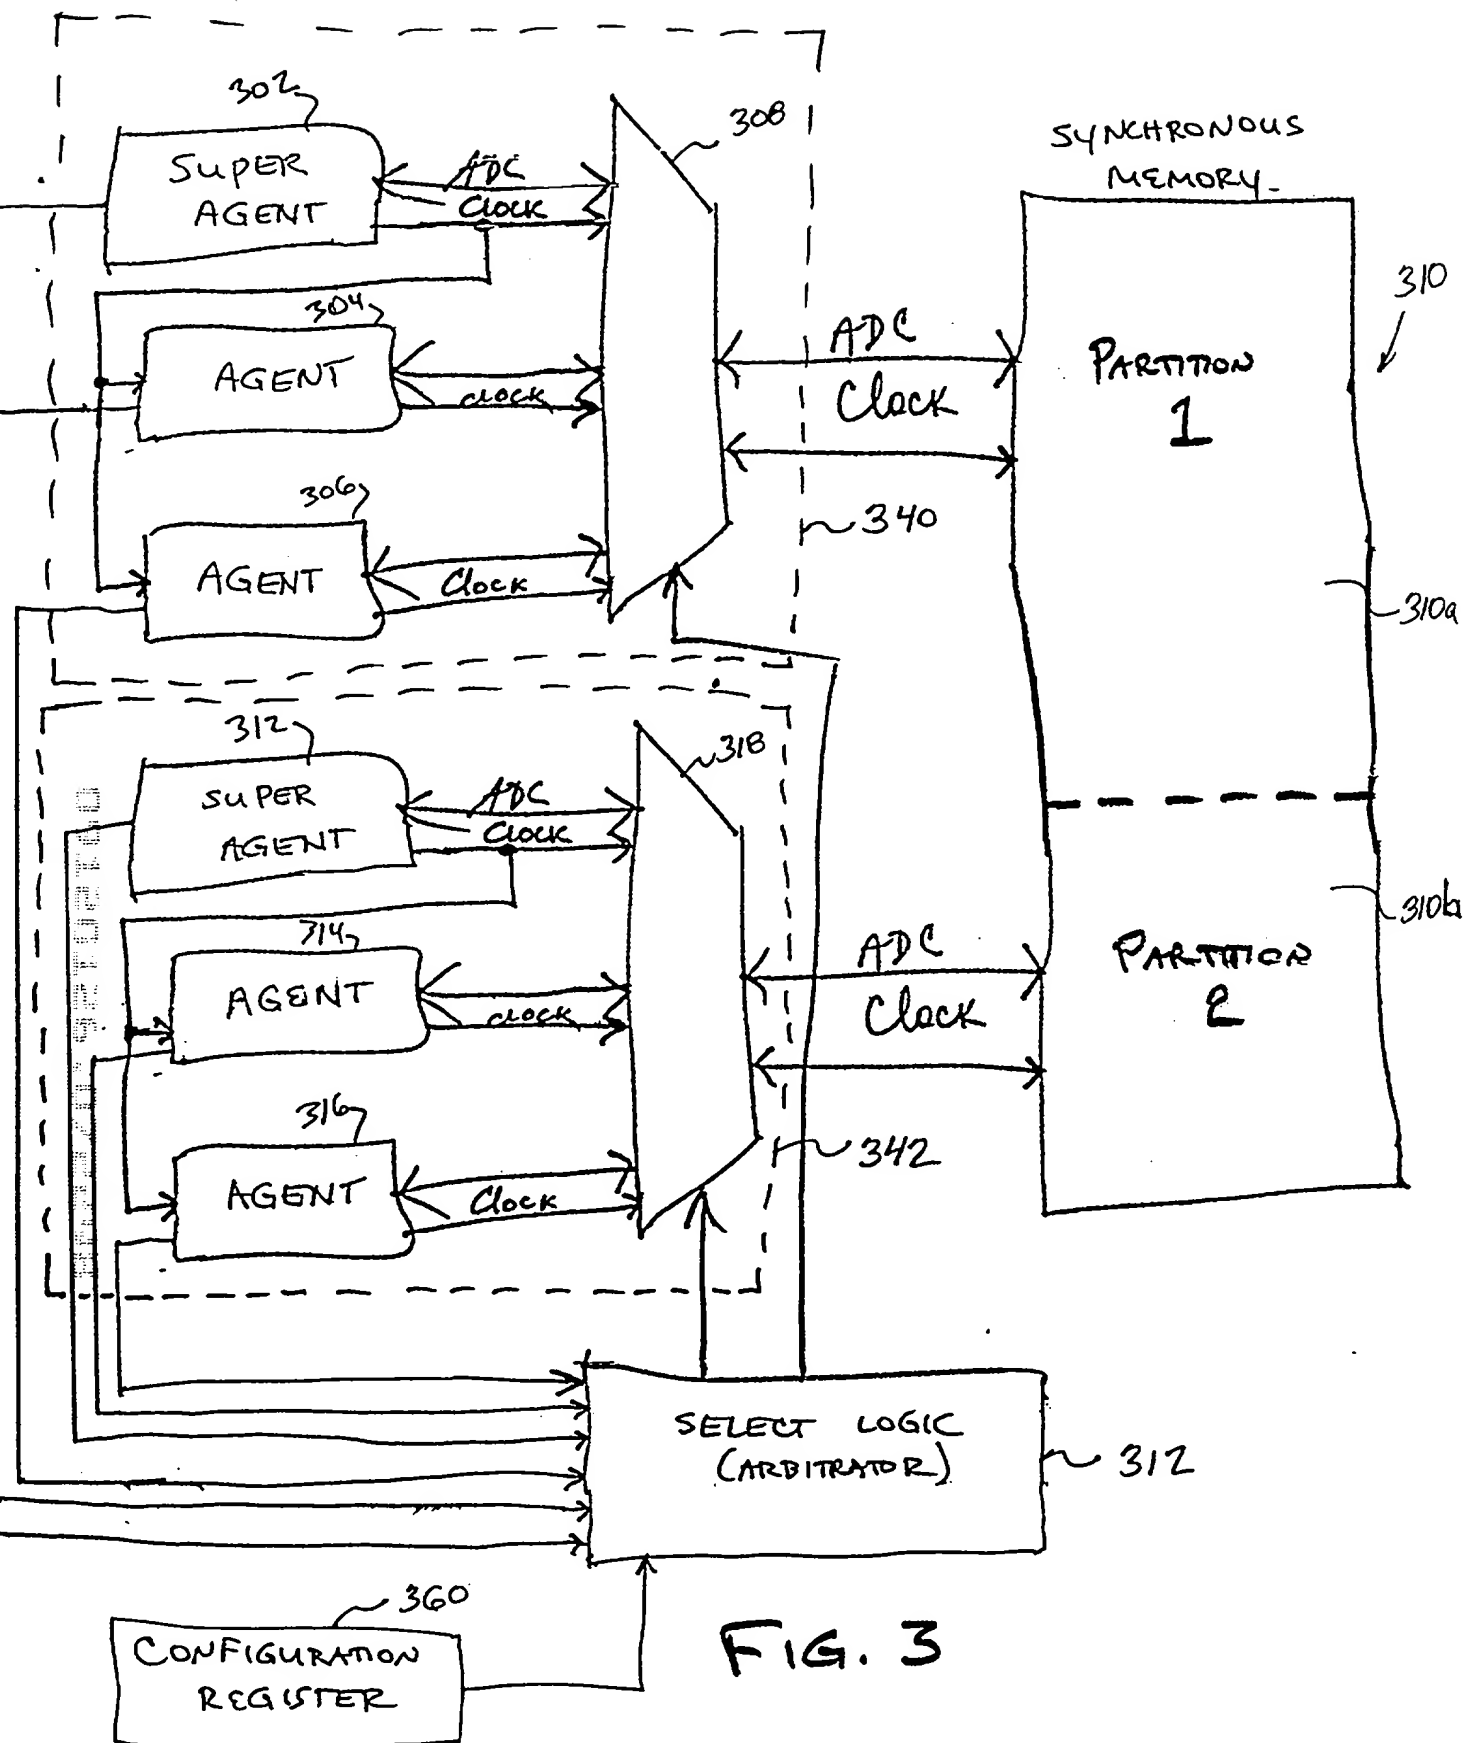 302
SUPER
AGENT
ADC
Clock
308
SYNCHRONOUS
MEMORY
310
304
AGENT
CLOCK
ADC
Clock
PARTITION
1
306
AGENT
Clock
340
310a
312
SUPER
AGENT
ADC
Clock
318
310b
314
AGENT
CLOCK
ADC
Clock
PARTITION
2
316
AGENT
Clock
342
SELECT LOGIC
(ARBITRATOR)
312
360
CONFIGURATION
REGISTER
FIG. 3